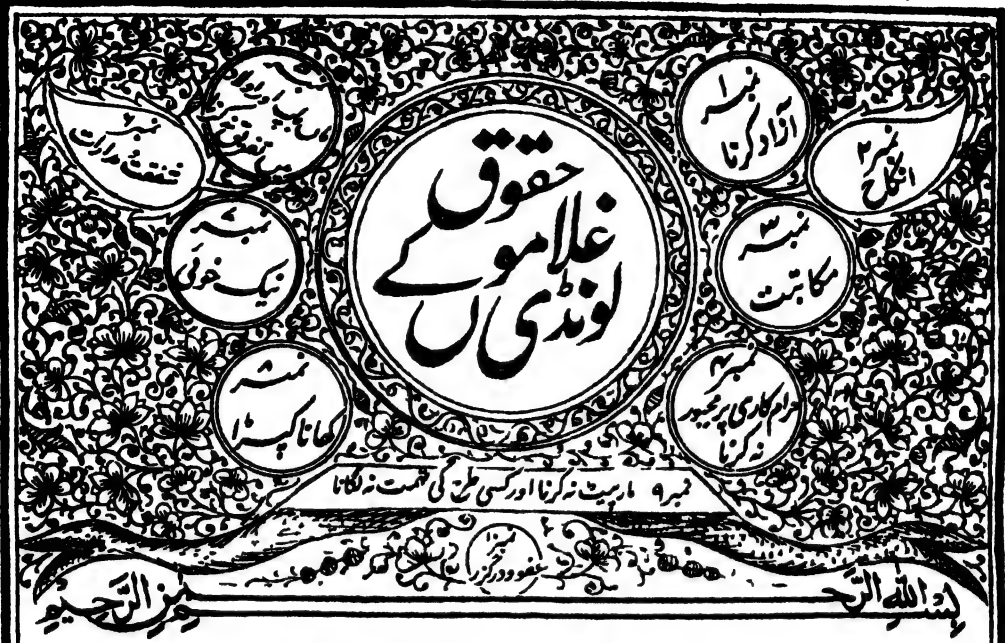 حقوق
غلاموں کے
لونڈی
نمبر ۱
آزاد کرنا
نمبر ۲
نکاح
نمبر ۳
مکاتبت
نمبر ۴
حرام کاری پر مجبور
نہ کرنا
ماں
نمبر ۶
شفقت و مدارات
نمبر ۷
نیک خوئی
نمبر ۸
کھانا کپڑا
نمبر ۹ مار پیٹ نہ کرنا اور کسی طرح کی تہمت نہ لگانا
نمبر
عفو و درگزر
بسم الله الرحمن الرحیم